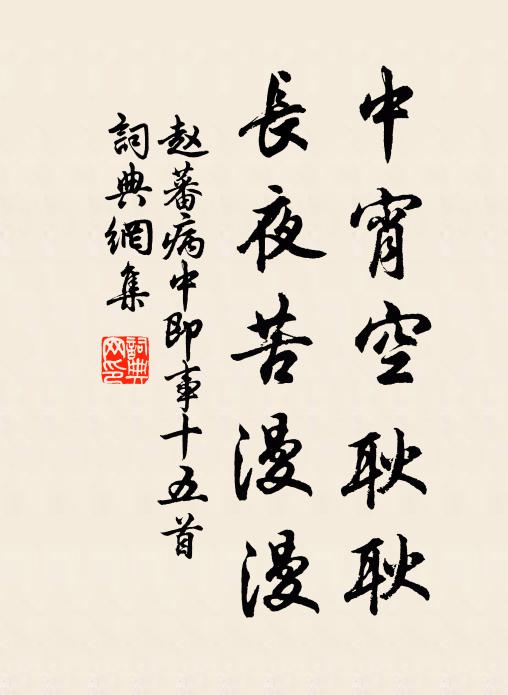 中宵空耿耿
長夜苦漫漫
赵蕃病中即事十五首
詞典網集
詞典网印